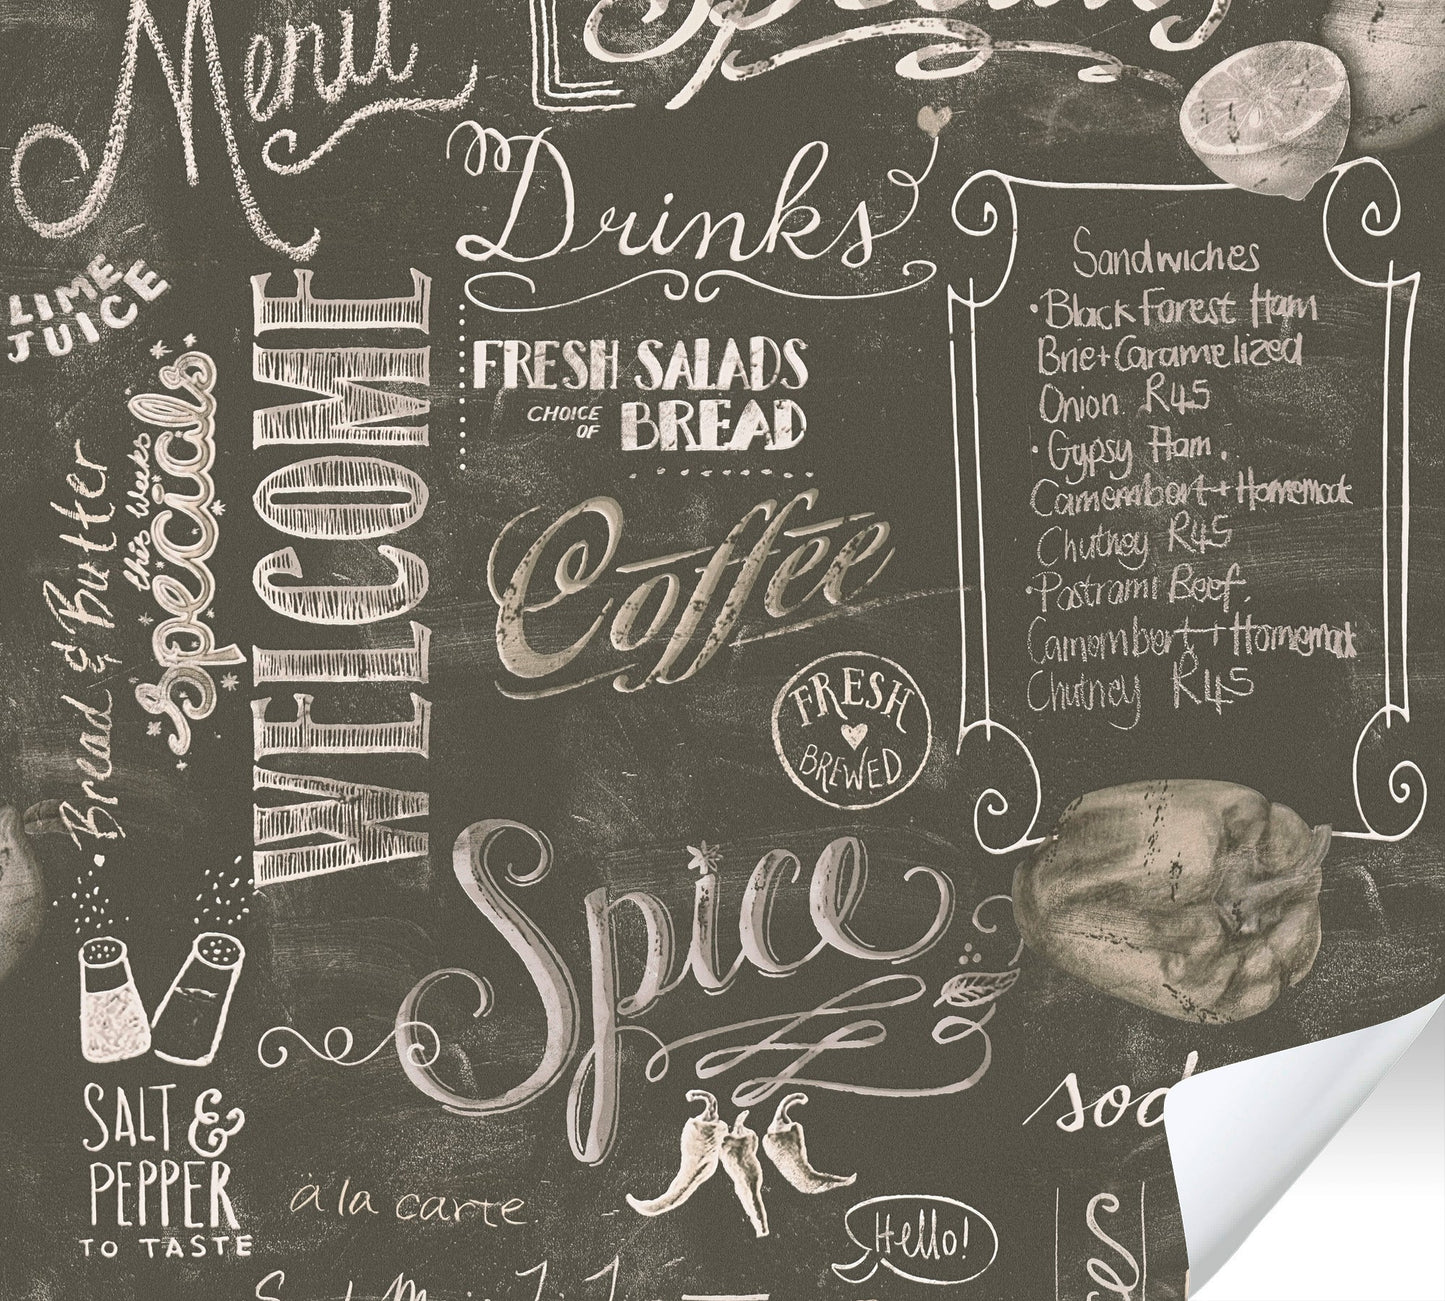 Menu
Drinks
LIME
JUICE
WELCOME
this weeks
Specials
Bread & Butter
FRESH SALADS
CHOICE
OF
BREAD
Coffee
FRESH
BREWED
Sandwiches
·Black Forest Ham
Brie+Caramelized
Onion R45
·Gypsy Ham.
Camembert + Homemade
Chutney R45
·Pastrami Beef.
Camembert + Homemade
Chutney R45
Spice
SALT &
PEPPER
TO TASTE
à la carte
Hello!